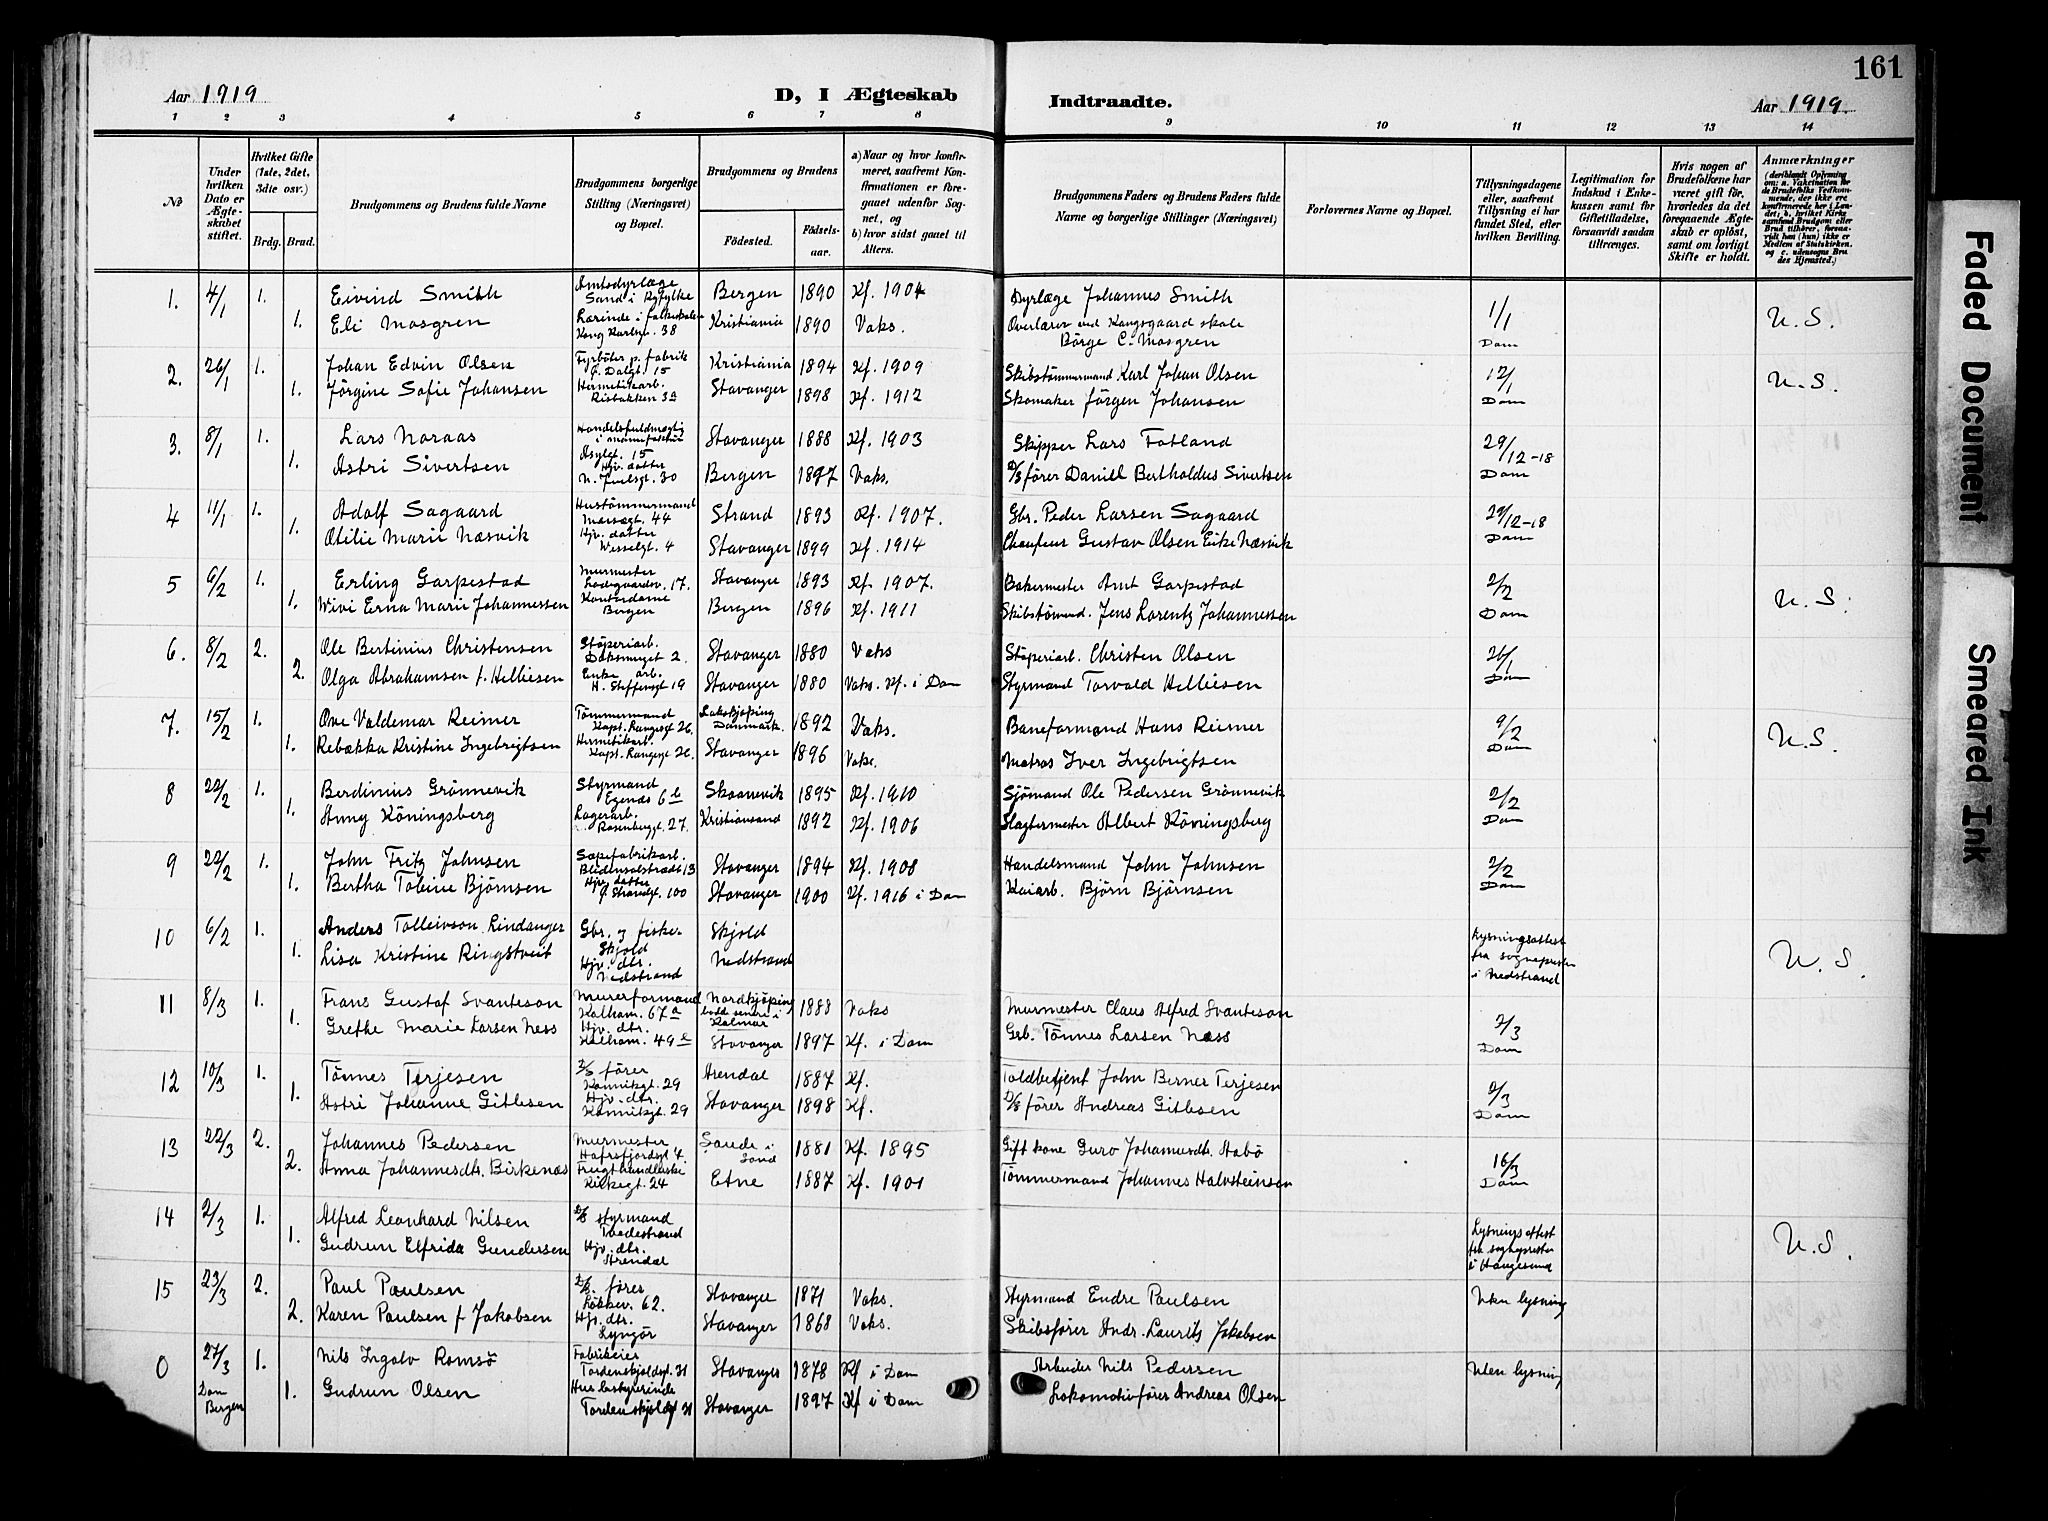 161
Aar 1919
D, I Ægteskab
Indtraadte.
Aar 1919.
1 2 3 4 5 6 7 8 9 10 11 12 13 14
No
Under hvilken Dato er Ægteskabet stiftet.
Hvilket Gifte (1ste, 2det, 3die osv.)
Brdg. Brud.
Brudgommens og Brudens fulde Navne
Brudgommens borgerlige Stilling (Næringsvei) og Bopæl.
Brudgommens og Brudens
Fødested.
Fødselsaar.
a) Naar og hvor konfirmeret, saafremt Konfirmationen er foregaaet udenfor Sognet, og
b) hvor sidst gaaet til Alters.
Brudgommens Faders og Brudens Faders fulde Navne og borgerlige Stillinger (Næringsvei)
Forlovernes Navne og Bopæl.
Tillysningsdagene eller, saafremt Tillysning ei har fundet Sted, efter hvilken Bevilling.
Legitimation for Indskud i Enkekassen samt for Giftetilladelse, forsaavidt saadan tiltrænges.
Hvis nogen af Brudefolkene har været gift før, hvorledes da det foregaaende Ægteskab er opløst, samt om lovligt Skifte er holdt.
Anmærkninger
(deriblandt Oplysning om: a. Vaksination for de Brudefolks Vedkommende, der ikke ere konfirmerede her i Landet; b. hvilket Kirkesamfund Brudgom eller Brud tilhører, forsaavidt han (hun) ikke er Medlem af Statskirken, og c. udensogns Brudes Hjemsted.)
1. 4/1 1. Eivind Smith Amtsdyrlæge Sand i Ryfylke Bergen 1890 Kf. 1904 Dyrlæge Johannes Smith 1/1 Dom U.S.
1. Eli Mosgren Lærinde i folkeskolen Kong Karlsg. 38 Kristiania 1890 Vaks. Overlærer ved Kongsgaard skole Börge C. Mosgren
2. 26/1 1. Johan Edvin Olsen Fyrböter p. fabrik Ö. Dalgt. 15 Kristiania 1894 Kf. 1909 Skibstömmermand Karl Johan Olsen 12/1 Dom U.S.
1. Jörgine Sofie Johansen Hermetikarb. Risbakken 3a Stavanger 1898 Kf. 1912 Skomaker Jörgen Johansen
3. 8/1 1. Lars Noraas Handelsfuldmægtig i manufaktur Asylgt. 15 Stavanger 1888 Kf. 1903 Skipper Lars Fotland 29/12-18 Dom
1. Astri Sivertsen Hjv. datter N. Juelsgt. 30 Bergen 1897 Vaks. D/S förer Daniel Bertholdus Sivertsen
4 11/1 1. Adolf Sagaard Hustömmermand 44 Strand 1893 Kf. 1907. Gbr. Peder Larsen Sagaard 29/12-18 Dom
1. Otilie Marie Næsvik Hjv. datter Wesselgt. 4 Stavanger 1899 Kf. 1914 Chauffeur Gustav Olsen Eike Næsvik
5 6/2 1. Erling Garpestad Murmester Ladegaardsv. 17. Stavanger 1893 Kf. 1907. Bakermester Amt Garpestad 2/2 Dom U.S.
1. Wivi Erna Marie Johannessen Kontordame Bergen Bergen 1896 Kf. 1911 Skibstömmd. Jens Lorentz Johannessen
6. 8/2 2. Ole Bertinius Christensen Stöperiarb. 2. Stavanger 1880 Vaks Stöperiarb. Christen Olsen 26/1 Dom
2. Olga Abrahamsen f. Helliesen Enke arb. H. Steffensgt 19 Stavanger 1880 Vaks. Kf. i Dom Styrmand Torvald Helliesen
7. 15/2 1. Ove Valdemar Reimer Tömmermand Kapt. Langesgt 26. Danmark. 1892 Vaks. Baneformand Hans Reimer 9/2 Dom U.S.
1. Rebekka Kristine Ingebrigtsen Hermetikarb. Kapt. Langesgt 26. Stavanger 1896 Vaks. Matros Iver Ingebrigtsen
8 22/2 1. Berdinius Grönnevik Styrmand Egenæs 6b Skaanevik 1895 Kf. 1910 Sjömand Ole Pedersen Grönnevik 2/2 Dom
1. Anny Köningsberg Lagerarb. Rosenberggt. 27. Kristiansand 1892 Kf. 1906 Slagtermester Albert Köningsberg
9 22/2 1. John Fritz Johnsen Sæpefabrikarb. Bledensolstrædt 13 Stavanger 1894 Kf. 1908 Handelsmand John Johnsen 2/2 Dom
1. Bertha Tobine Bjørnsen Hjv. datter Ö. Strandgt. 100 Stavanger 1900 Kf. 1916 i Dom Kaiarb. Björn Björnsen
10 6/2 1. Anders Tolleivson Lindanger Gbr. og fisker Skjold Skjold Lysningsattest fra sogneprsten i Nedstrand U.S.
1. Lisa Kristine Ringstveit Hjv. dtr. Nedstrand Nedstrand
11 8/3 1. Frans Gustaf Svanteson Murerformand Kalham. 67a Nordkjöping bodd senere i Kalmar 1888 Vaks Murmester Claus Alfred Svanteson 2/3 Dom
1. Grethe Marie Larsen Ness Hjv. dtr. Kalham. 49b Stavanger 1897 Kf. i Dom Gb. Tönnes Larsen Næss
12 10/3 1. Tönnes Terjesen D/S förer Kannikgt. 29 Arendal 1887 Kf. Toldbetjent John Berner Terjesen 2/3 Dom
1. Astri Johanne Gitlesen Hjv. dtr. Kannikgt. 29 Stavanger 1898 Kf. D/S förer Andreas Gitlesen
13 22/3 2. Johannes Pedersen Murmester Hafrsfjordgt 4. Saude i Sand 1881 Kf. 1895 Gift kone Guro Johannesdtr. Habö 16/3 Dom
2. Anna Johannesdtr. Birkenæs Frugthandlerske Kirkegt. 24 Etne 1887 Kf. 1901 Tömmermand Johannes Halvsteinsen
14 2/3 1. Alfred Leonhard Nilsen D/S styrmand Tvedestrand Lysningsattest fra sogneprsten i Haugesund U.S.
1. Gudrun Elfrida Gundersen Hjv. dtr. Arendal
15 23/3 2. Paul Paulsen D/S. förer Lökkev. 62. Stavanger 1871 Vaks. Styrmand Endre Paulsen Uten lysning
2. Karen Paulsen f Jakobsen Hjv. dtr. Lyngör Stavanger 1868 Vaks. Skibsförer Andr. Laurits Jakobsen
0 27/3 Dom Bergen 1. Nils Ingolv Romsö Fabrikeier Tordenskjoldgt. 31 Stavanger 1878 Kf i Dom Arbeider Nils Pedersen Uten lysning
1. Gudrun Olsen Husbestyrerinde Tordenskjoldgt 31 Stavanger 1897 Kf i Dom Lokomotivförer Andreas Olsen
Faded Document
Smeared Ink